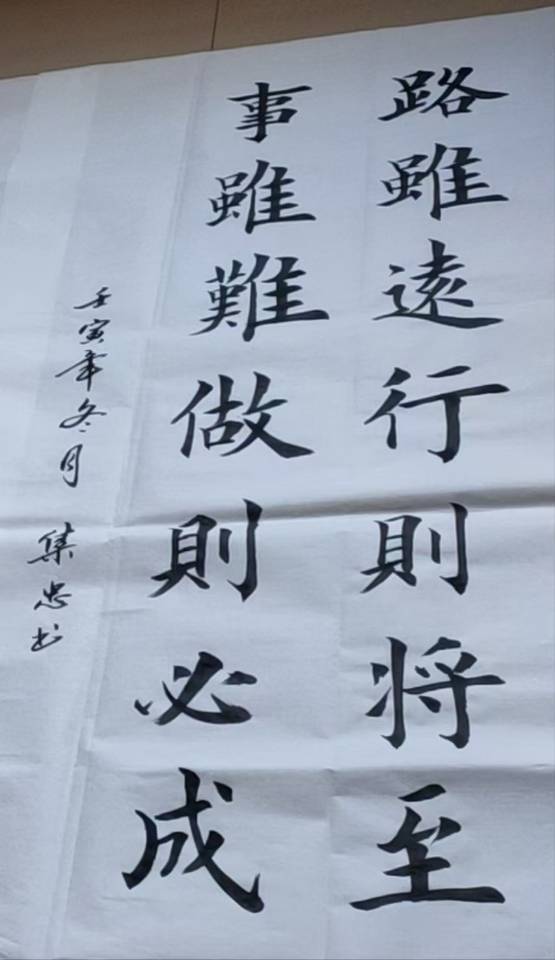 路雖遠行則将至
事雖難做則必成
壬寅年冬月 集忠书